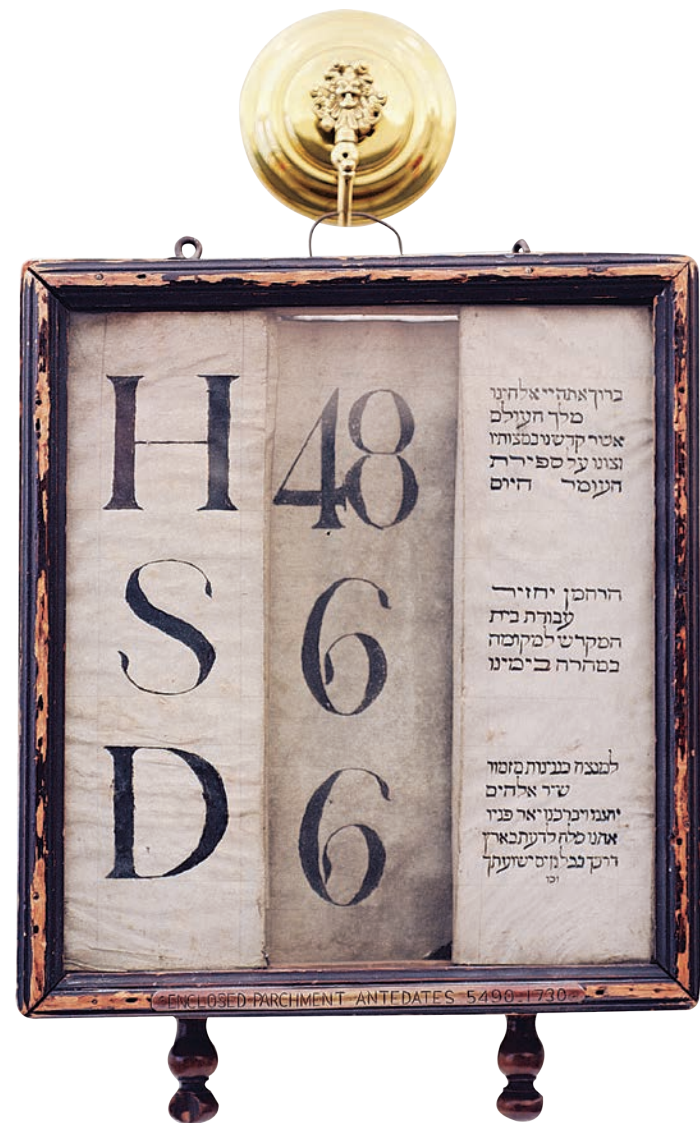 H 48
ברוך אתה ייי אלהינו
מלך העולם
אשר קדשנו במצותיו
וצונו על ספירת
העומר היום
S 6
הרחמן יחזיר
עבודת בית
המקדש למקומה
במהרה בימינו
D 6
למנצח בנגינות מזמור
שיר אלהים
יחננו ויברכנו יאר פניו
אתנו סלה לדעת בארץ
דרכך בכל גוים ישועתך
וכו
ENCLOSED PARCHMENT ANTEDATES 5490-1730